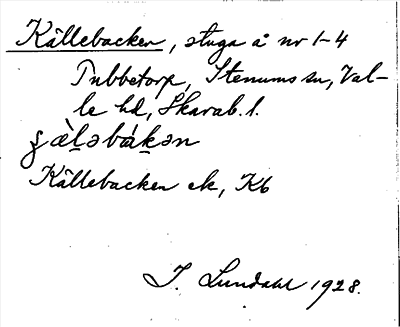 Källebacken, stuga å nr 1-4
Tubbetorp, Stenums sn, Val-
le hd, Skarab. l.
Källebacken ek, Kb
I. Lundahl 1928.